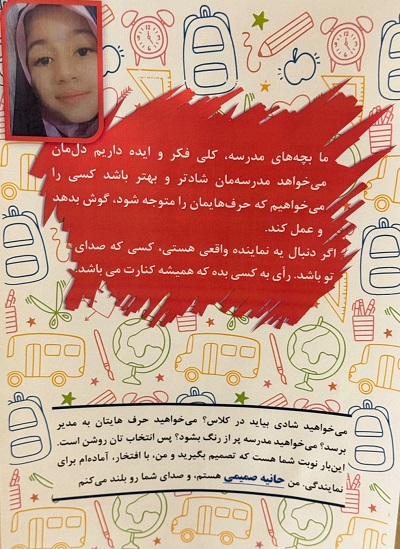 ما بچه‌های مدرسه، کلی فکر و ایده داریم دل‌مان
می‌خواهد مدرسه‌مان شادتر و بهتر باشد کسی را
می‌خواهیم که حرف‌هایمان را متوجه شود، گوش بدهد
و عمل کند.
اگر دنبال یه نماینده واقعی هستی، کسی که صدای
تو باشد. رأی به کسی بده که همیشه کنارت می باشد.
می‌خواهید شادی بیاید در کلاس؟ می‌خواهید حرف هایتان به مدیر
برسد؟ می‌خواهید مدرسه پر از رنگ بشود؟ پس انتخاب تان روشن است.
این‌بار نوبت شما هست که تصمیم بگیرید و من، با افتخار، آماده‌ام برای
نمایندگی. من حانیه صمیمی هستم، و صدای شما رو بلند می‌کنم